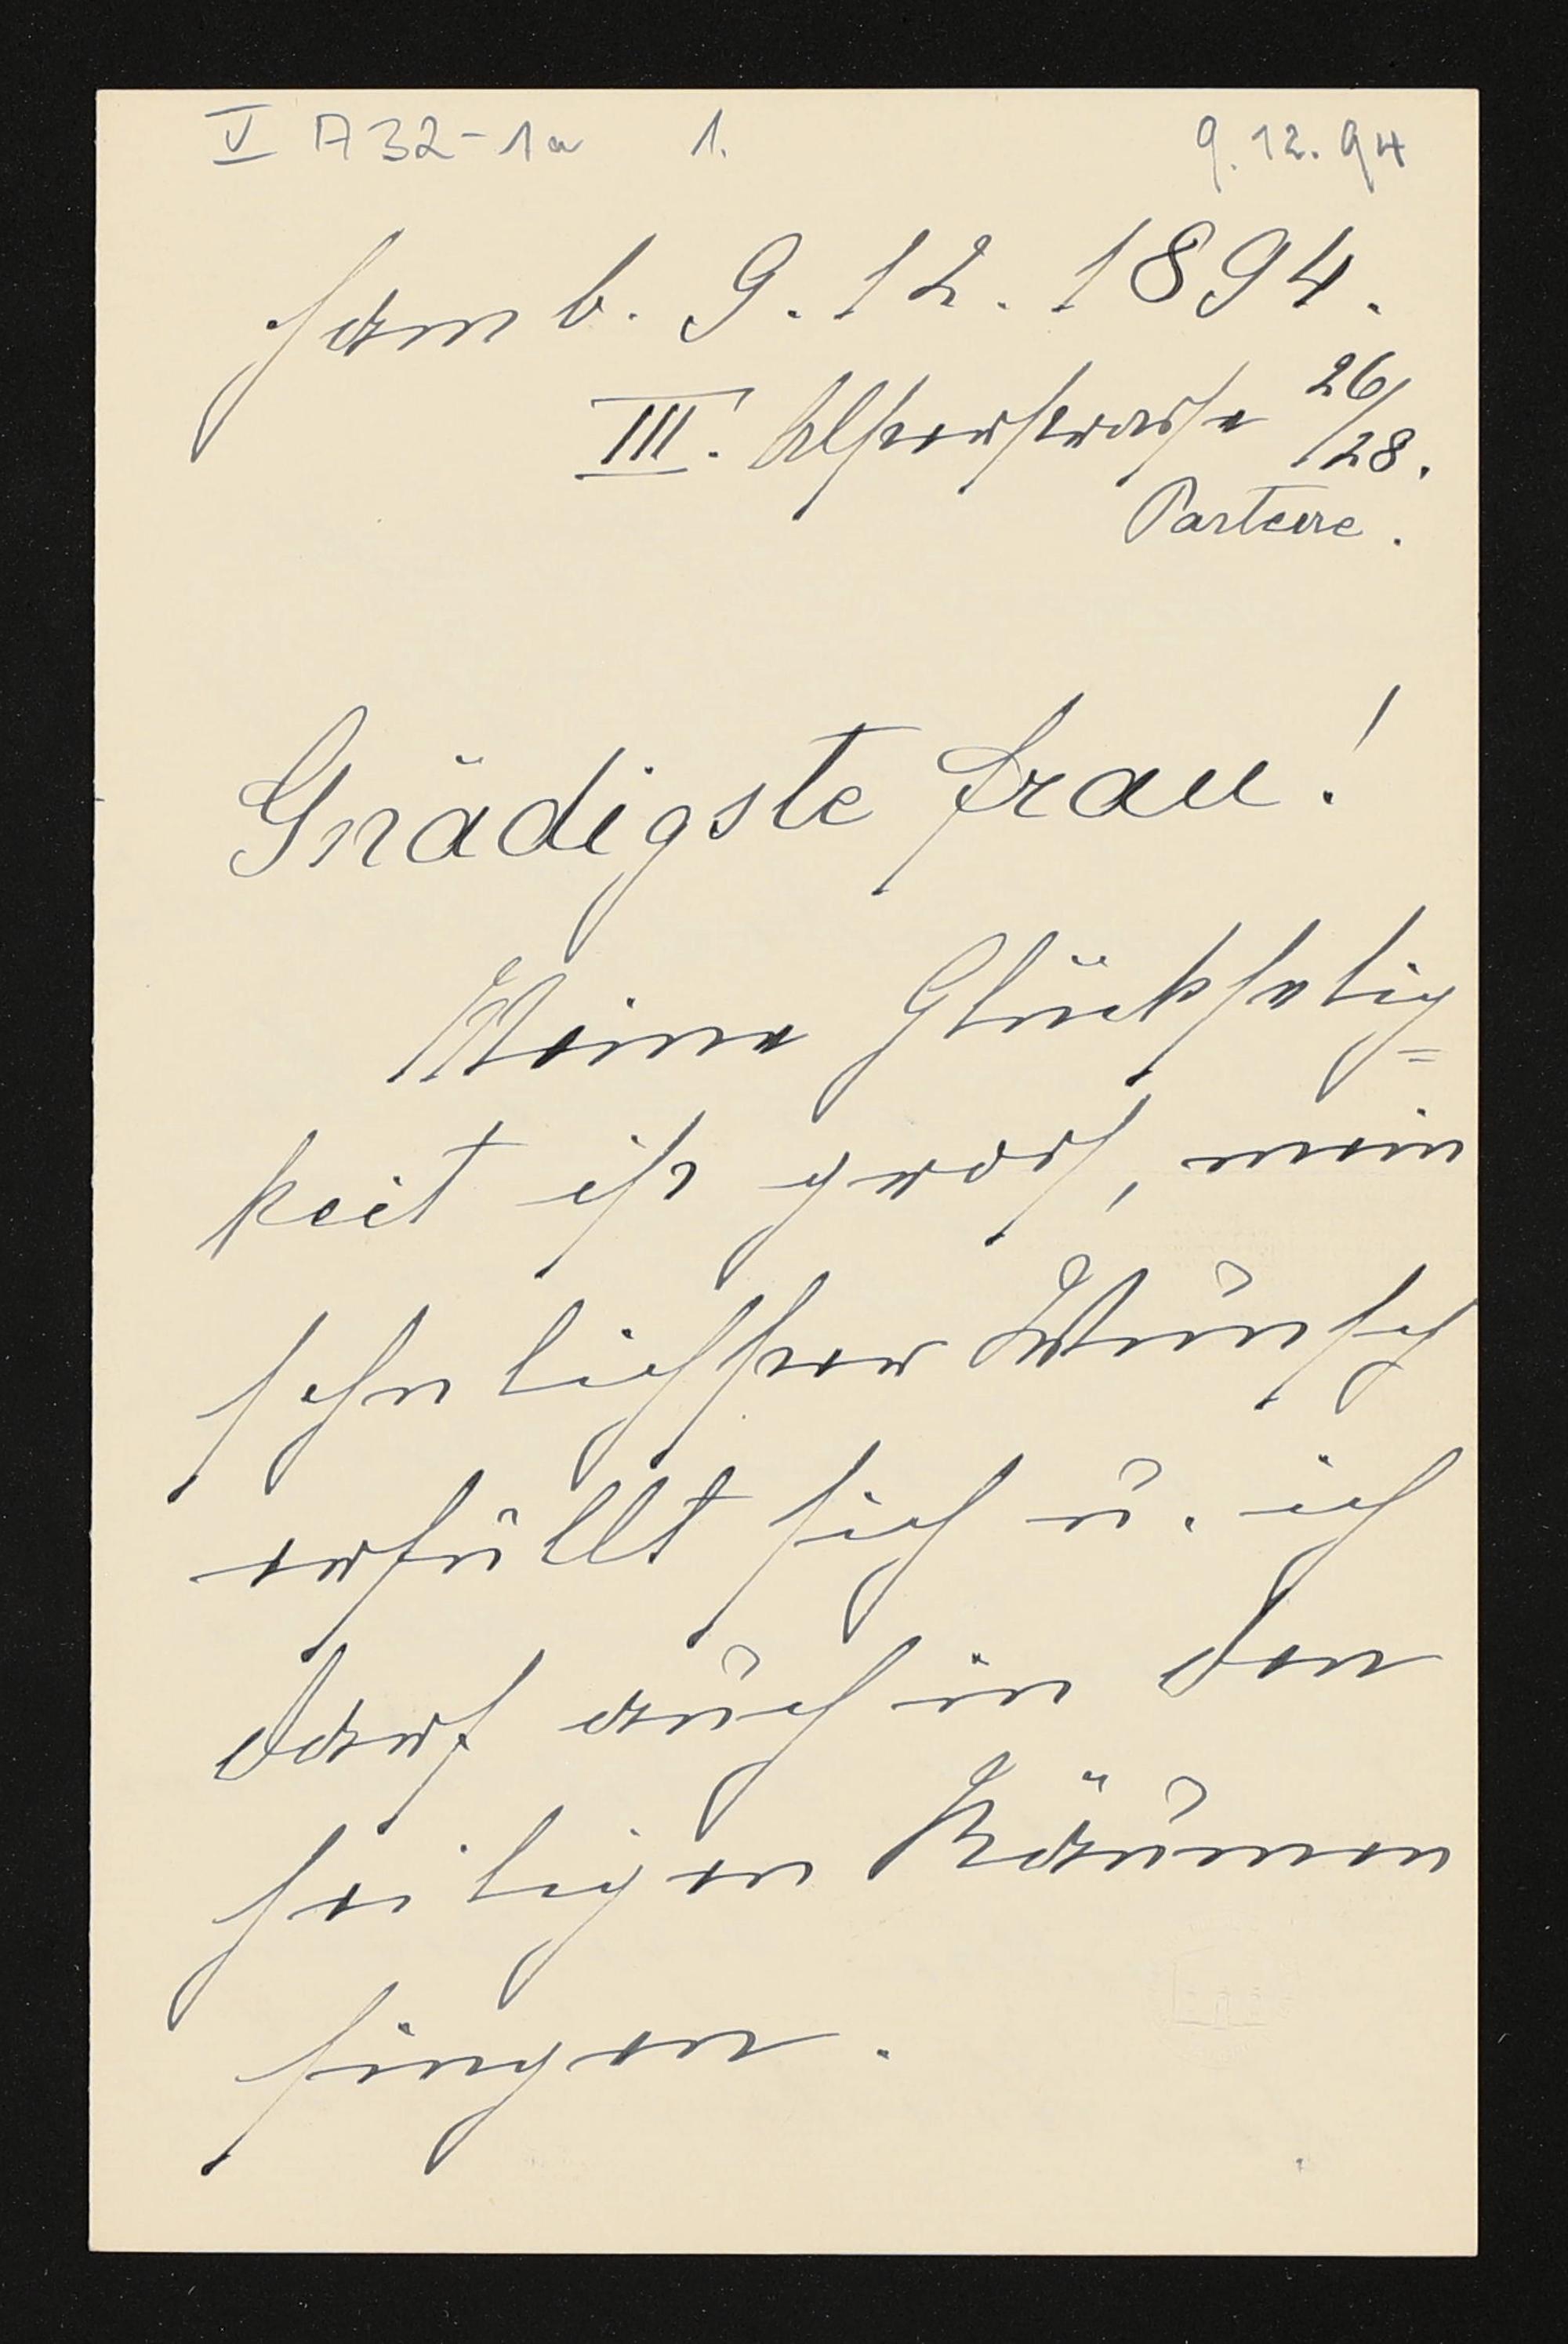 V A32-1a 1. 9.12.94
Hamb. 9.12.1894.
III. Alsterstrasse 26/28.
Parterre.
Gnädigste Frau!
Meine Glückselig=
keit ist gross, mein
sehnlichster Wunsch
erfüllt sich u. ich
darf auch in den
heiligen Räumen
singen.